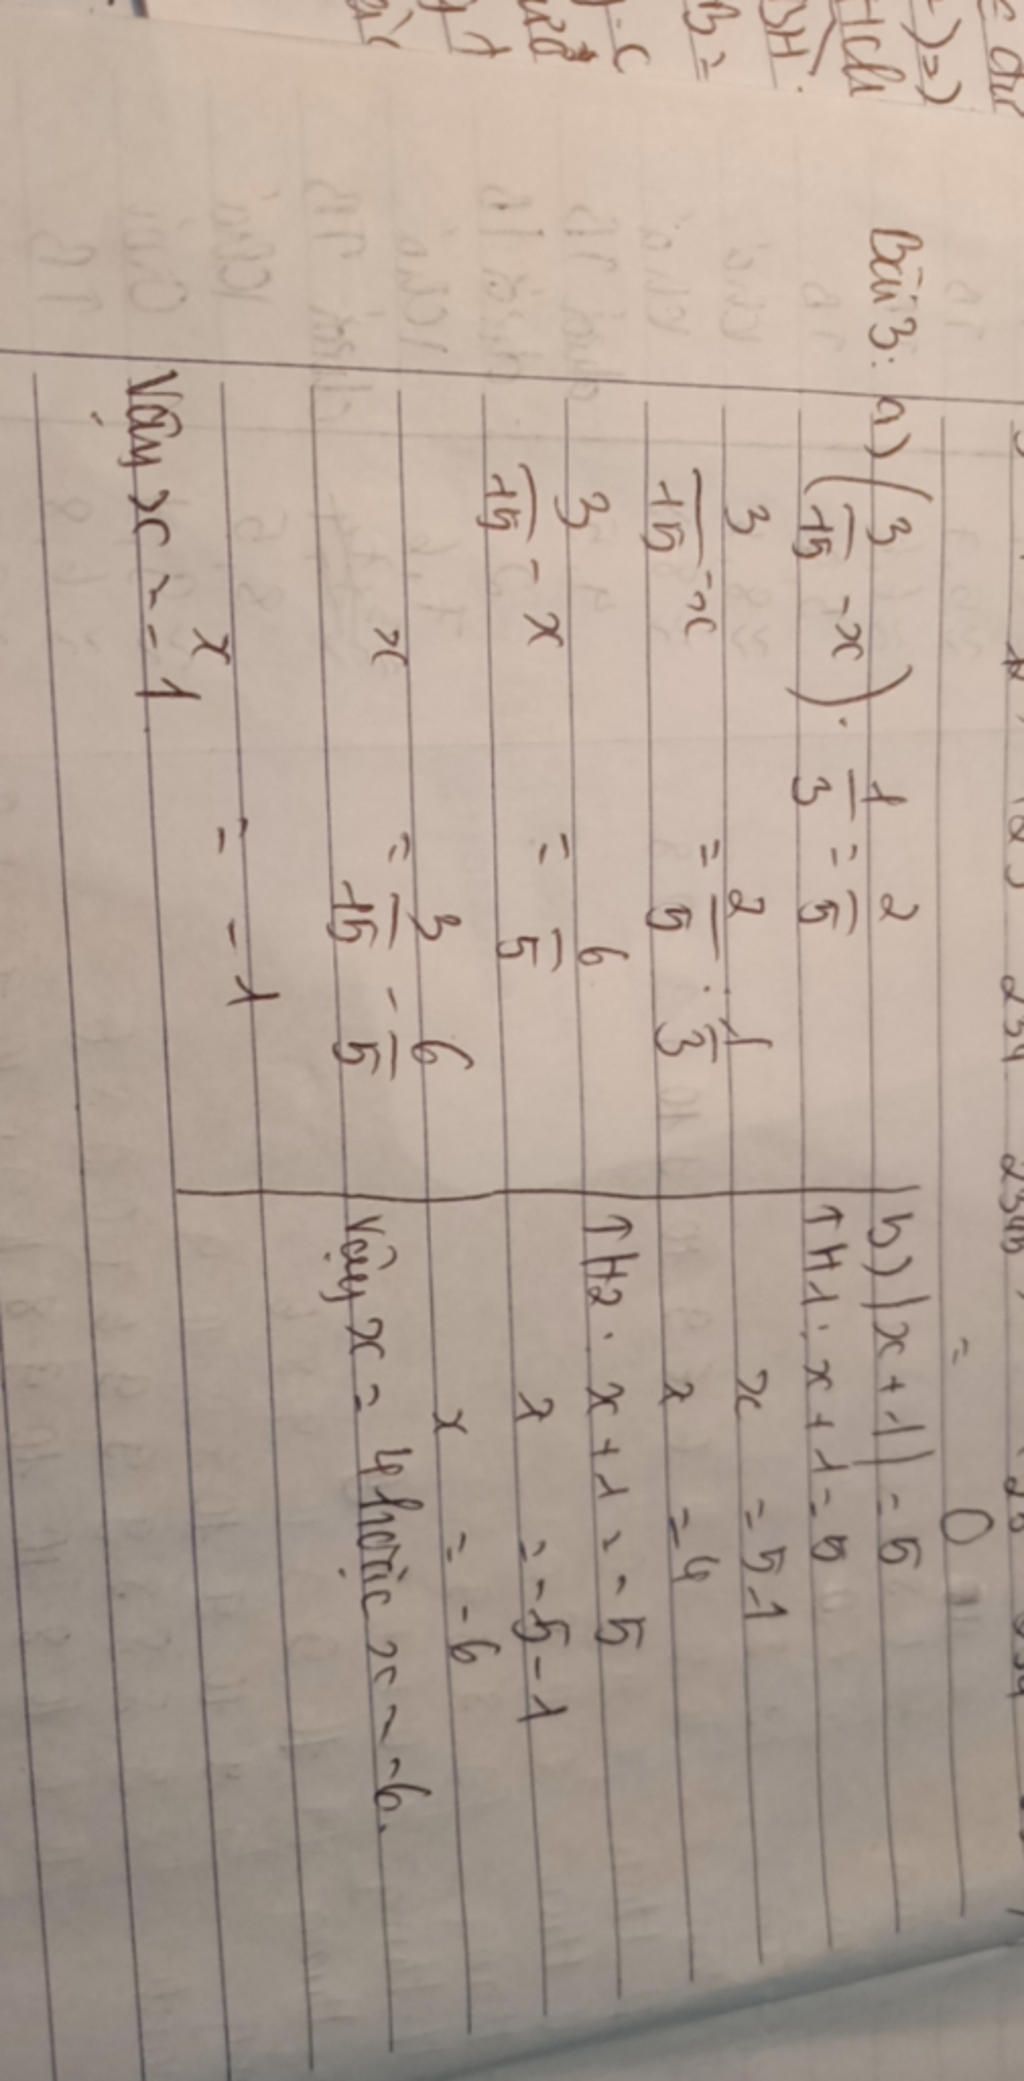 Bài 3: a) (3/15 - x) . 1/3 = 2/5
3/15 - x = 2/5 : 1/3
3/15 - x = 6/5
x = 3/15 - 6/5
x = -1
Vậy x = -1
b) |x + 1| = 5
TH1: x + 1 = 5
x = 5-1
x = 4
TH2: x + 1 = -5
x = -5 - 1
x = -6
Vậy x = 4 hoặc x = -6.